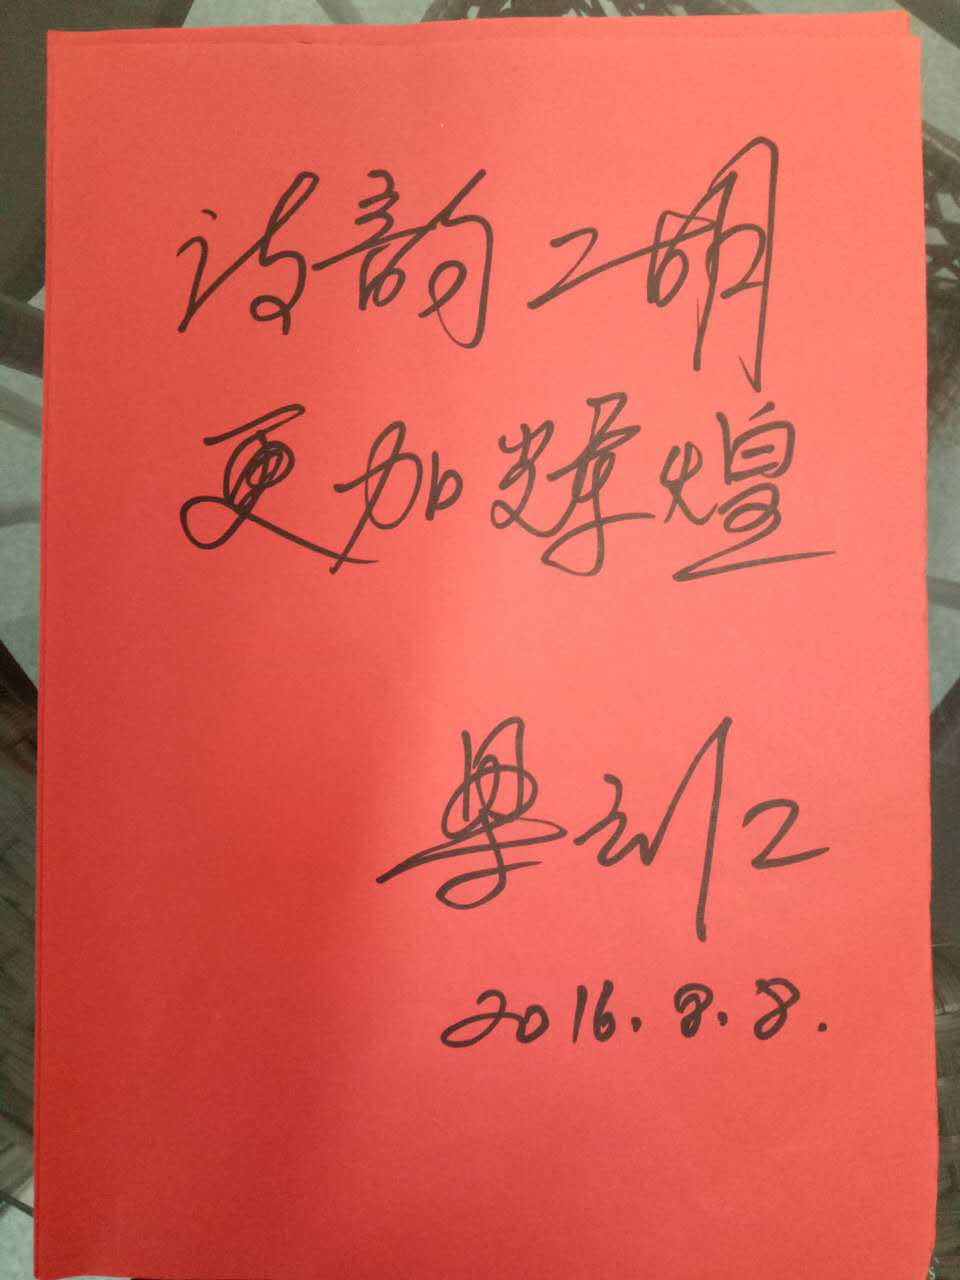 诗韵二胡
更加辉煌
梁云江
2016.8.8.